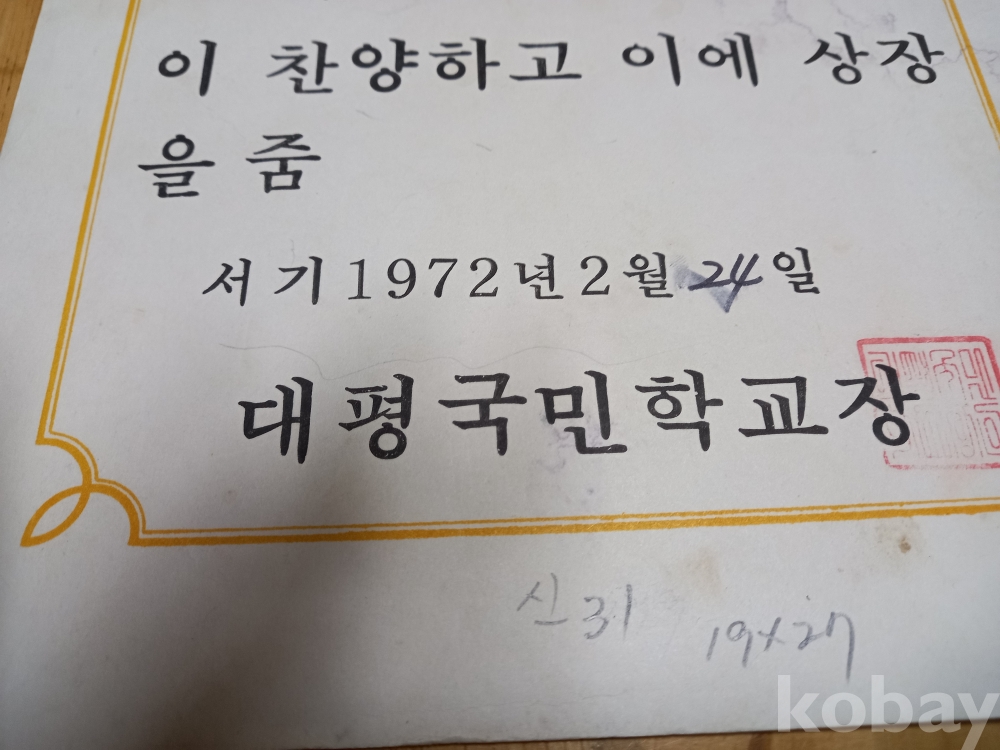 이 찬양하고 이에 상장
을 줌
서기 1972년 2월 24일
대평국민학교장
신 31
19x27
kobay